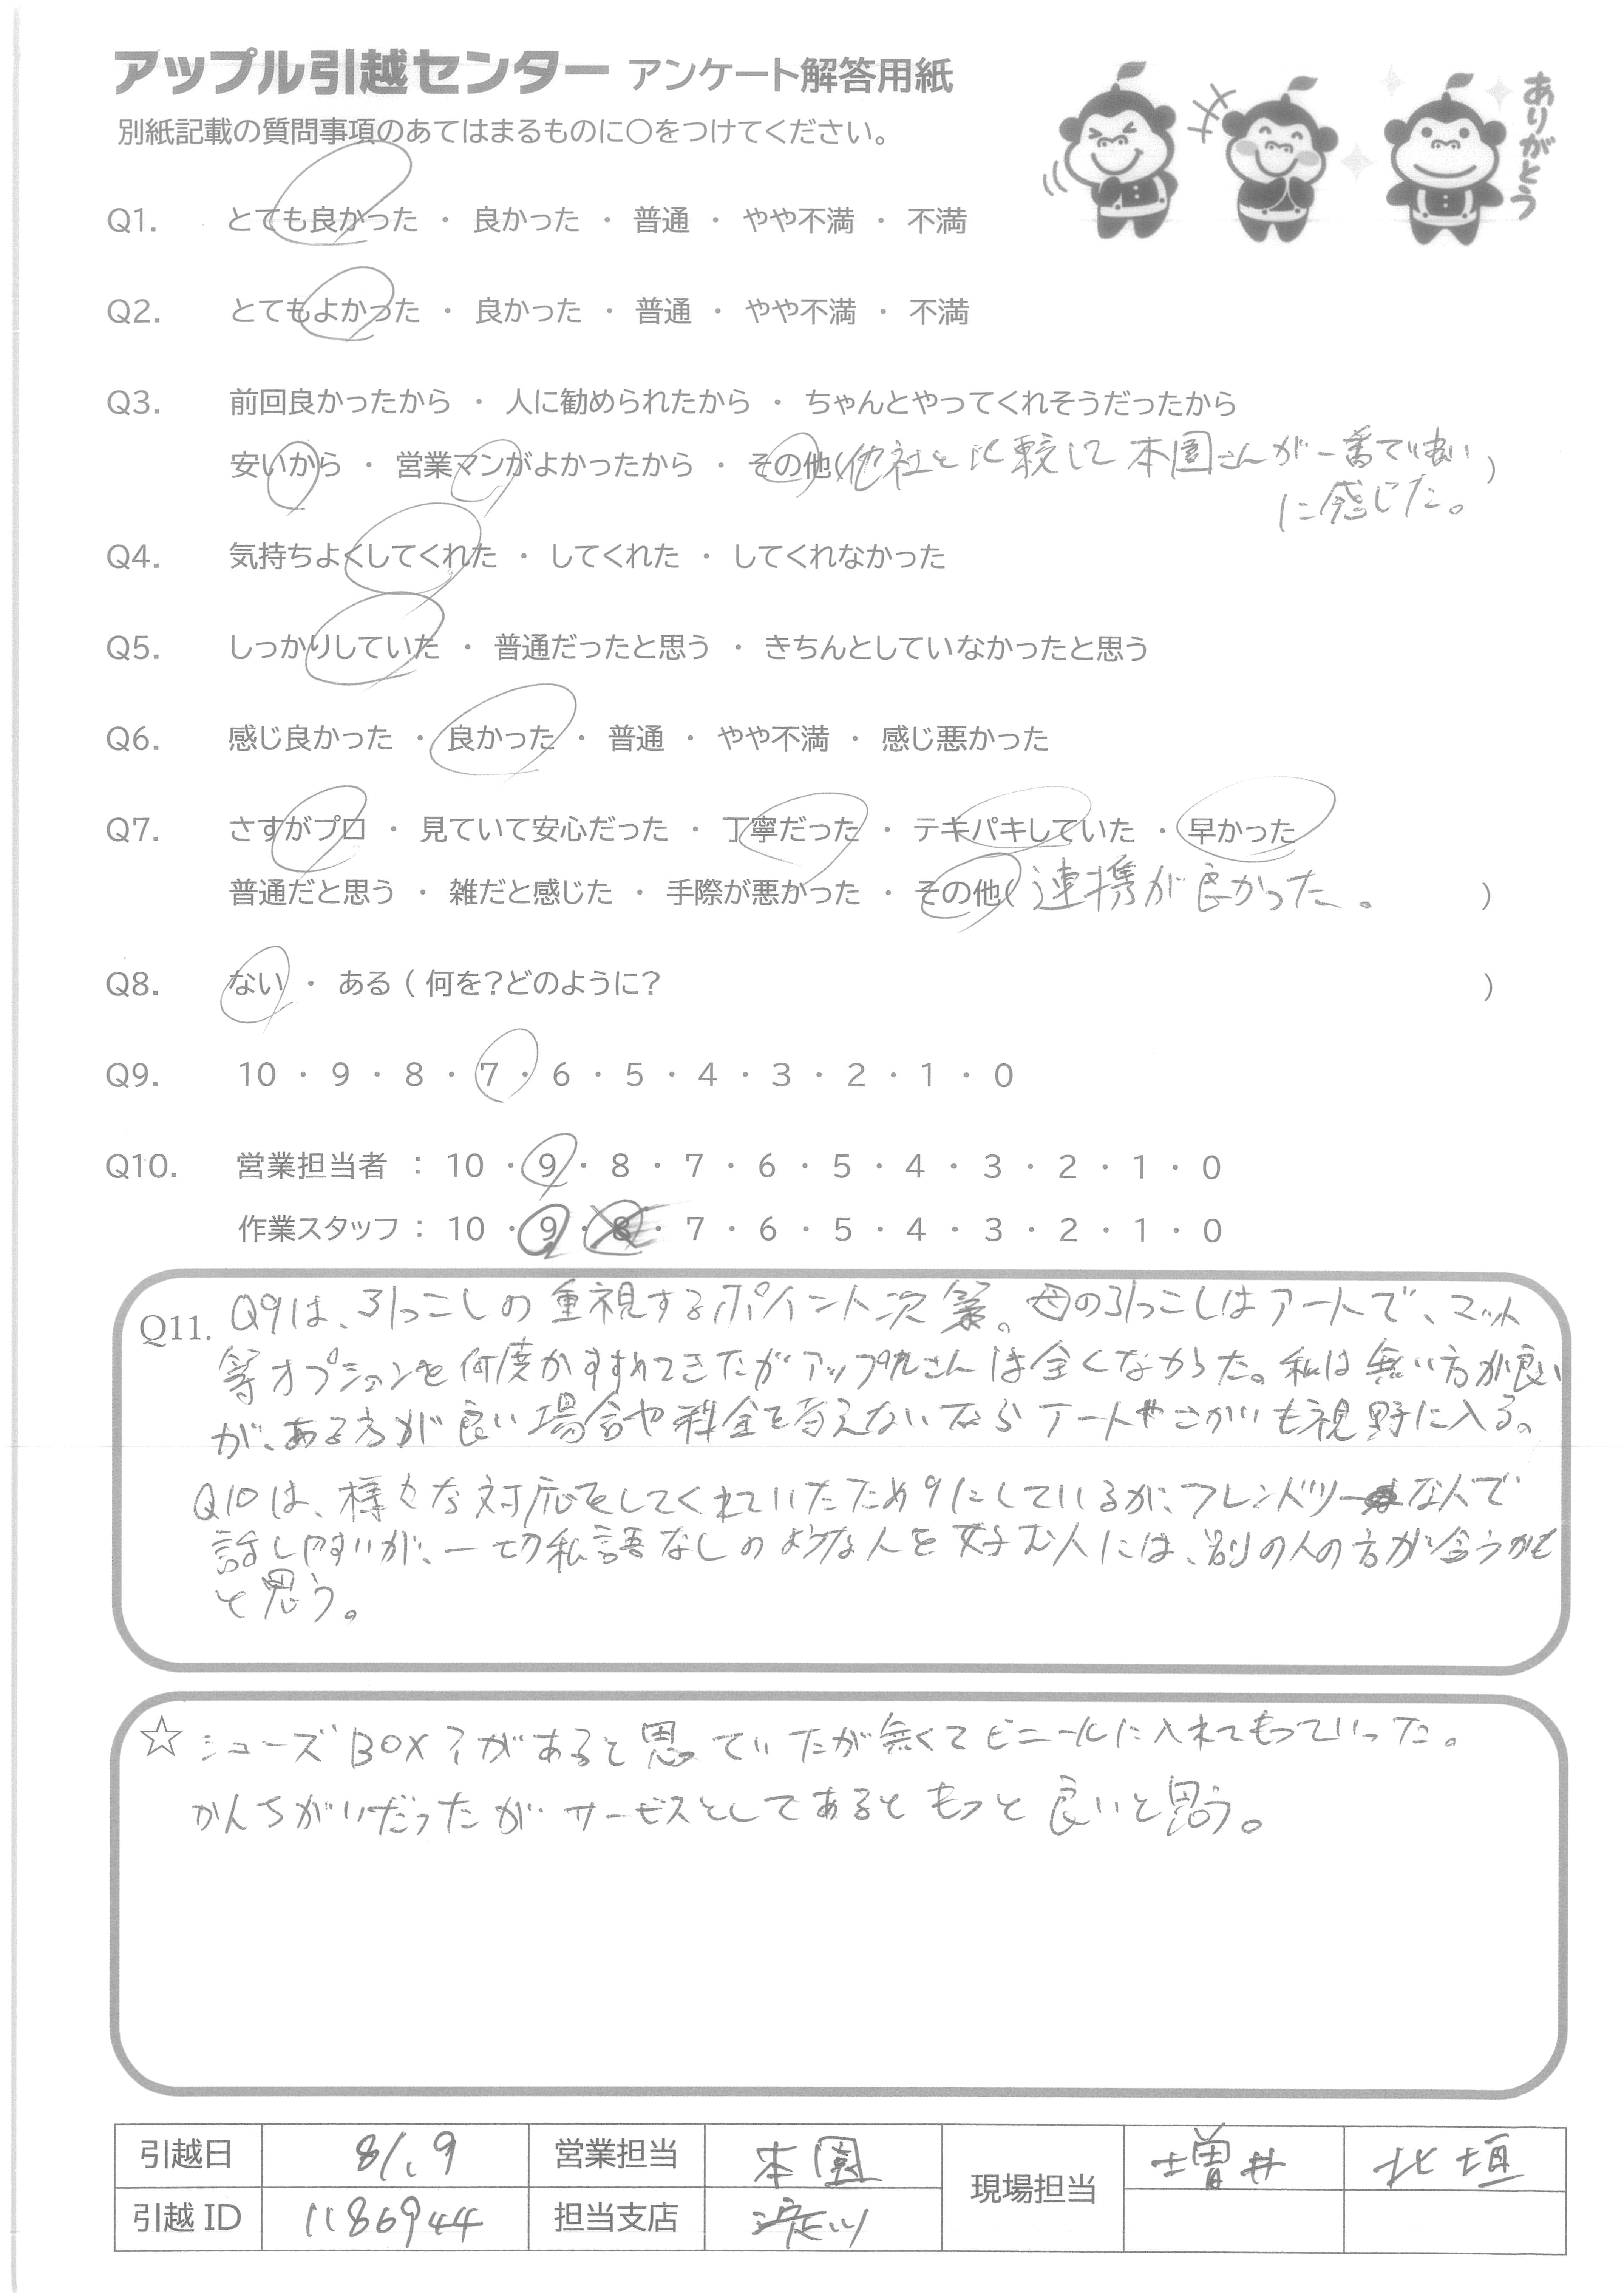 アップル引越センター アンケート解答用紙
ありがとう
別紙記載の質問事項のあてはまるものに〇をつけてください。
Q1. とても良かった ・ 良かった ・ 普通 ・ やや不満 ・ 不満
Q2. とてもよかった ・ 良かった ・ 普通 ・ やや不満 ・ 不満
Q3. 前回良かったから ・ 人に勧められたから ・ ちゃんとやってくれそうだったから
安いから ・ 営業マンがよかったから ・ その他(他社と比較して本園さんが一番で良い)
に感じた。
Q4. 気持ちよくしてくれた ・ してくれた ・ してくれなかった
Q5. しっかりしていた ・ 普通だったと思う ・ きちんとしていなかったと思う
Q6. 感じ良かった ・ 良かった ・ 普通 ・ やや不満 ・ 感じ悪かった
Q7. さすがプロ ・ 見ていて安心だった ・ 丁寧だった ・ テキパキしていた ・ 早かった
普通だと思う ・ 雑だと感じた ・ 手際が悪かった ・ その他( 連携が良かった。 )
Q8. ない ・ ある ( 何を?どのように? )
Q9. 10 ・ 9 ・ 8 ・ 7 ・ 6 ・ 5 ・ 4 ・ 3 ・ 2 ・ 1 ・ 0
Q10. 営業担当者 : 10 ・ 9 ・ 8 ・ 7 ・ 6 ・ 5 ・ 4 ・ 3 ・ 2 ・ 1 ・ 0
作業スタッフ : 10 ・ 9 ・ 8 ・ 7 ・ 6 ・ 5 ・ 4 ・ 3 ・ 2 ・ 1 ・ 0
Q11. Q9は、引っこしの重視するポイント次第。母の引っこしはアートで、マット
等オプションを何度かすすめてきたがアップルさんは全くなかった。私は無い方が良い
が、ある方が良い場合や料金を考えないならアートやさかいも視野に入る。
Q10は、様々な対応をしてくれていたため9にしているが、フレンドリーな人で
話しやすいが、一切私語なしのような人を好む人には、別の人の方が合うかも
と思う。
☆ シューズBOX?があると思っていたが無くてビニールに入れてもっていった。
かんちがいだったがサービスとしてあるともっと良いと思う。
引越日 8/.9 営業担当 本園 現場担当 増井 北垣
引越ID 1186944 担当支店 淀川